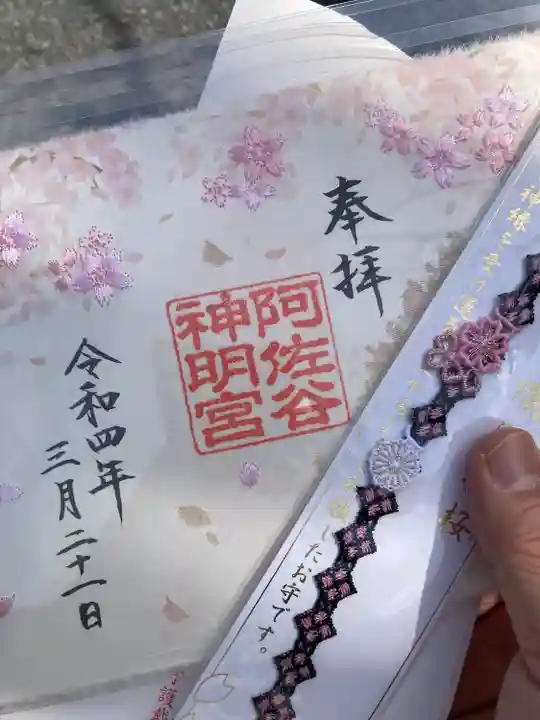 奉拝
阿佐谷
神明宮
令和四年
三月二十一日
したお守です。